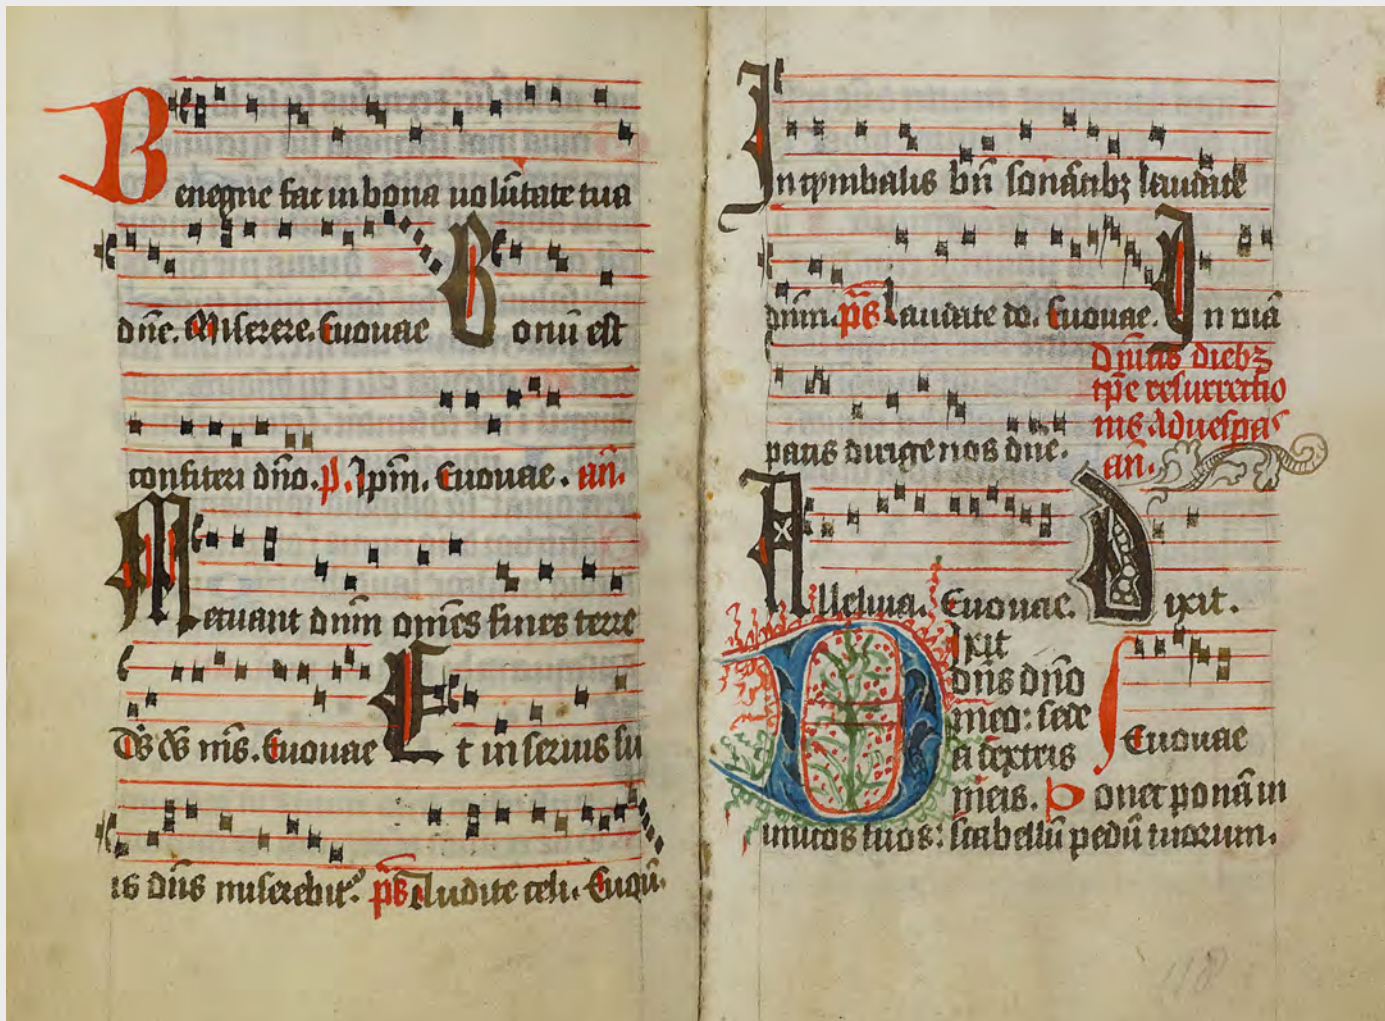 Benegne fac in bona uolūtate tua
dn̄e. Miserere. Euouae Bonū est
confiteri dn̄o. p̄. Ip̄m. Euouae. an̄.
Metuant dn̄m om̄es fines terre
d̄s d̄s nr̄s. Euouae Et in seruis su
is dn̄s miserebit᷑. p̄s Audite celi. Euou.
In cymbalis bn̄ sonātibꝫ laudate
dn̄m. p̄s Laudate do. Euouae. In uiā
pacis dirige nos dn̄e.
dn̄icis diebꝫ
tp̄e resurrectio
nis ad uesp̄as
an̄.
Alleluia. Euouae. Dixit.
Dixit
dn̄s dn̄o
meo: sede
a dextris
meis. Donec ponā in
imicos tuos: scabellū pedū tuorum.
Euouae
118